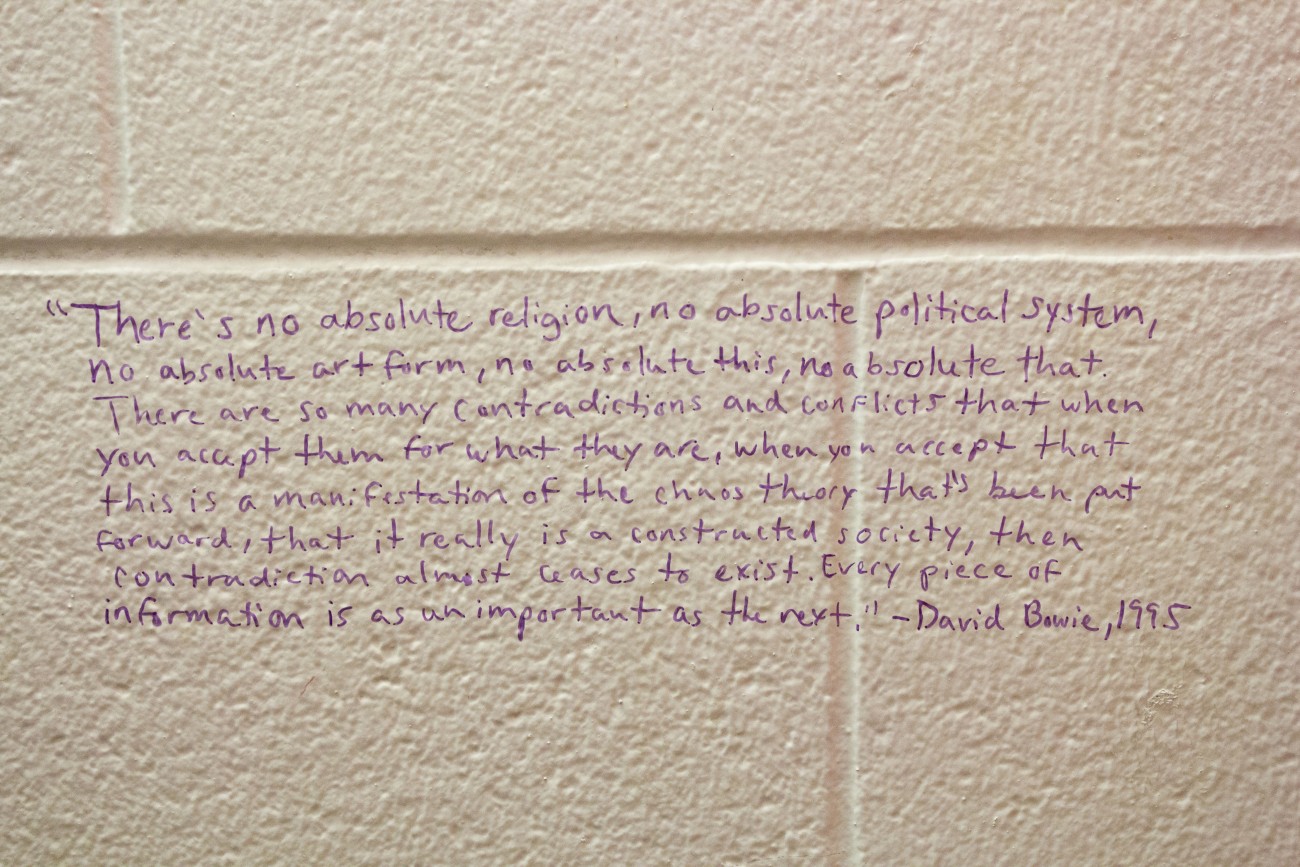 "There's no absolute religion, no absolute political system,
no absolute art form, no absolute this, no absolute that.
There are so many contradictions and conflicts that when
you accept them for what they are, when you accept that
this is a manifestation of the chaos theory that's been put
forward, that it really is a constructed society, then
contradiction almost ceases to exist. Every piece of
information is as unimportant as the next." -David Bowie, 1995